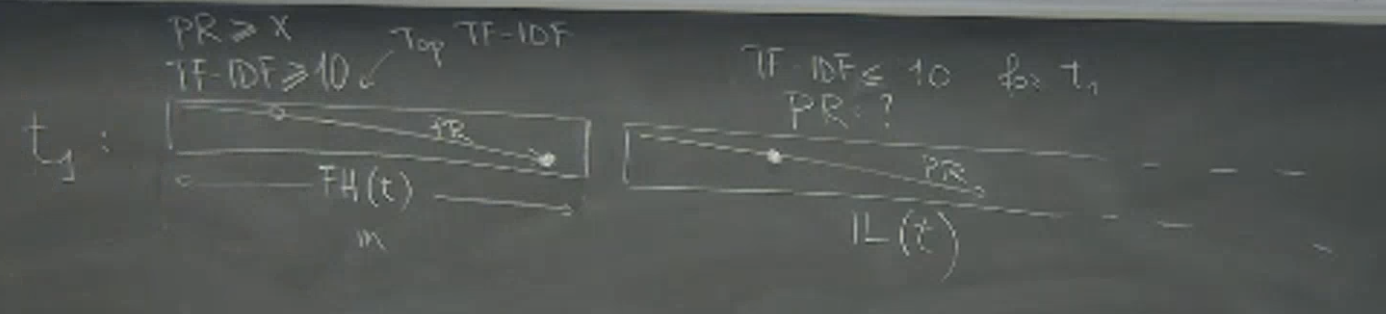 PR ≥ X
TF-IDF ≥ 10
Top TF-IDF
t₁ :
PR
FH(t)
m
TF-IDF ≤ 10 for t₁
PR: ?
PR
IL(t)